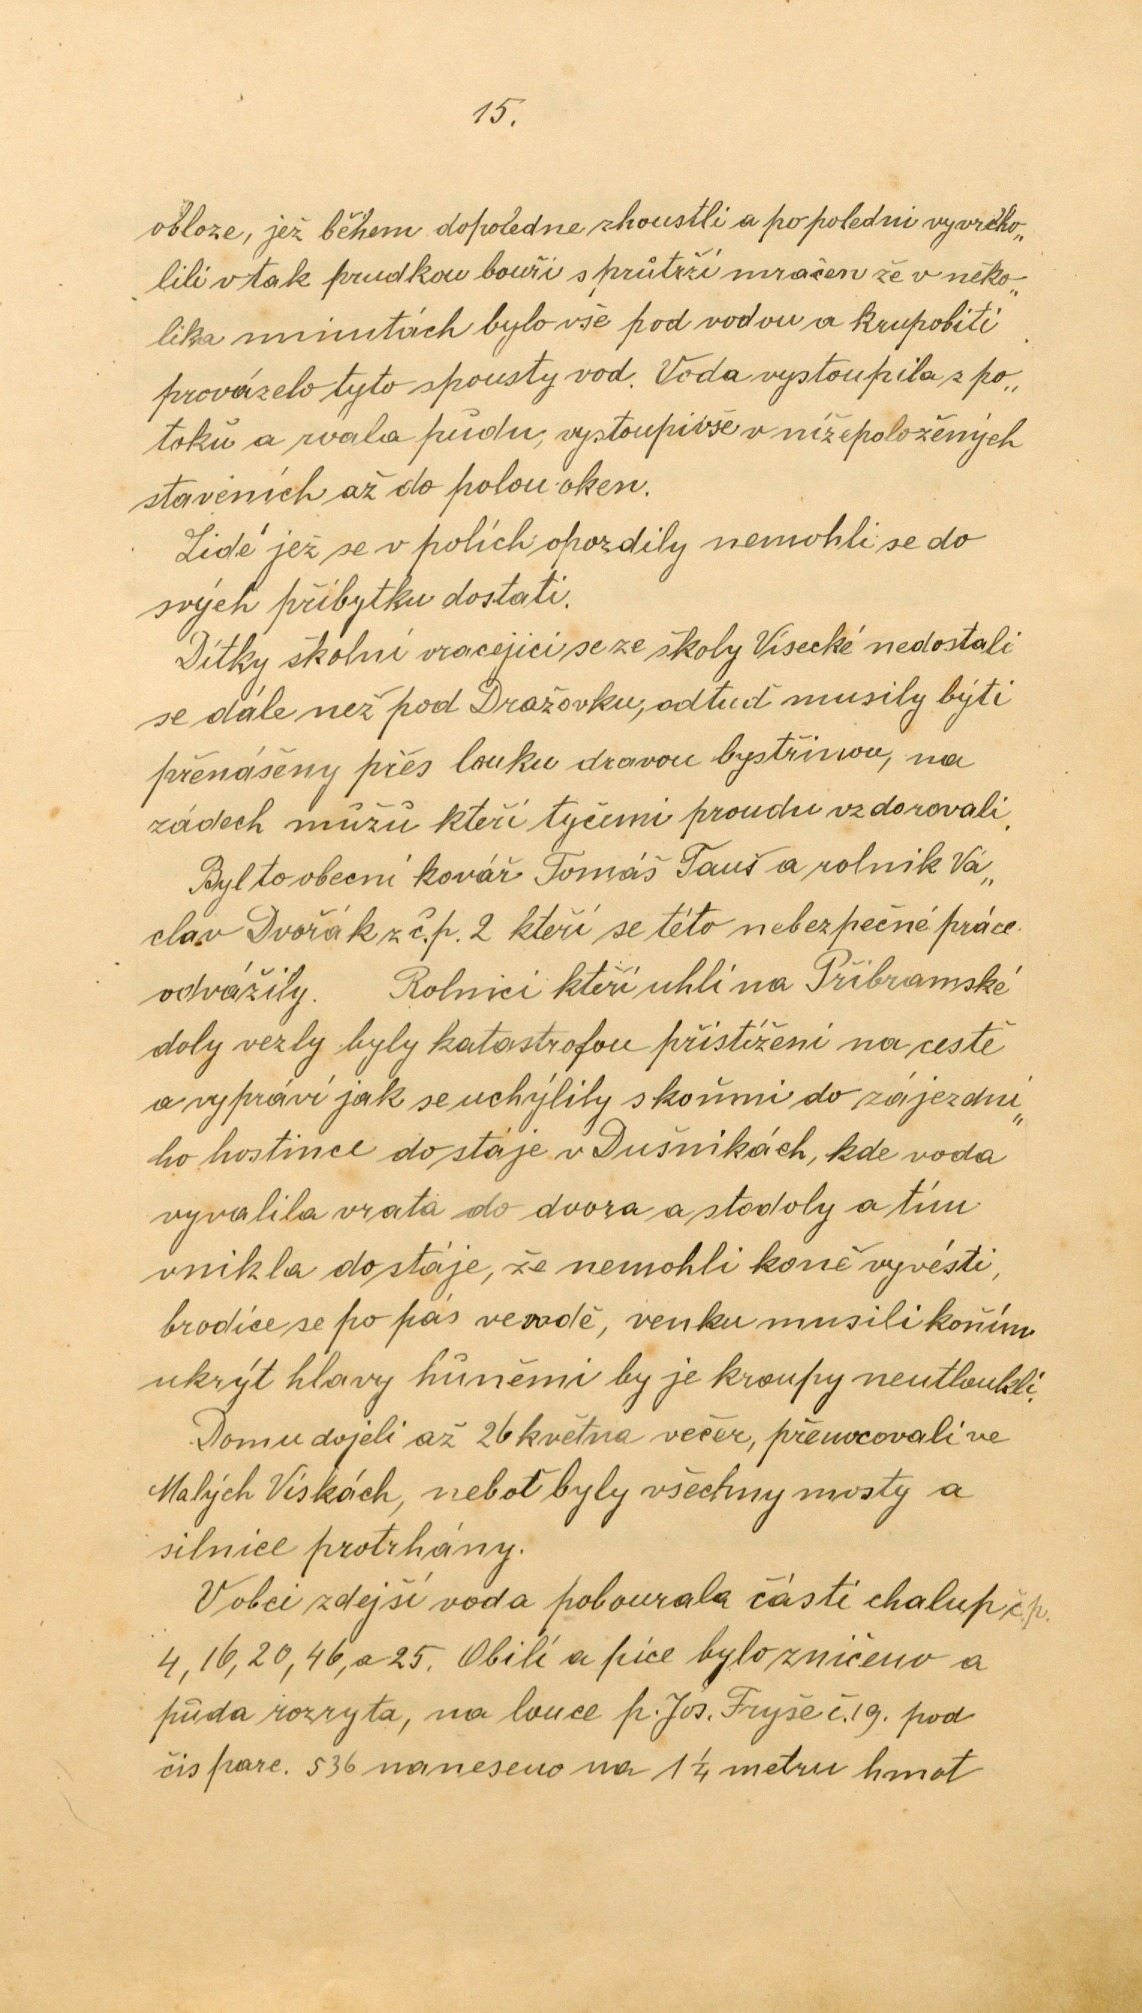 15.
obloze, jež během dopoledne zhoustli a po poledni vyvrcho„
lili v tak prudkou bouři s průtrží mračen že v něko„
lika minutách bylo vše pod vodou a krupobití
provázelo tyto spousty vod. Voda vystoupila z po„
toků a rvala půdu, vystoupivše v nížepoložených
staveních až do polou oken.
Lidé jež se v polích opozdily nemohli se do
svých příbytku dostati.
Dítky školní vracející se ze školy Vísecké nedostali
se dále než pod Dražovku, odtuď musily býti
přenášeny přes louku dravou bystřinou, na
zádech můžů kteří tyčemi proudu vzdorovali.
Byl to obecní kovář Tomáš Tauš a rolník Vá„
clav Dvořák z č.p. 2 kteří se této nebezpečné práce
odvážily. Rolníci kteří uhlí na Příbramské
doly vezly byly katastrofou přistiženi na cestě
a vypráví jak se uchýlily s koňmi do zájezdní„
ho hostince do stáje v Dušníkách, kde voda
vyvalila vrata do dvora a stodoly a tím
vnikla do stáje, že nemohli koně vyvésti,
brodíce se po pás ve vodě, venku musili koním
ukrýt hlavy húněmi by je kroupy neutloukli.
Domu dojeli až 26 května večer, přenocovali ve
Malých Vískách, neboť byly všechny mosty a
silnice protrhány.
V obci zdejší voda pobourala částí chalup č.p.
4, 16, 20, 46, a 25. Obilí a píce bylo zničeno a
půda rozryta, na louce p. Jos. Fryše č. 19. pod
čis parc. 536 naneseno na 1 1/4 metru hmot